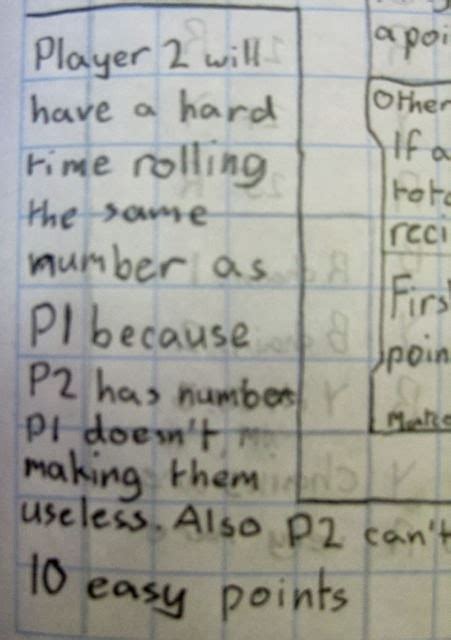 Player 2 will
have a hard
time rolling
the same
number as
P1 because
P2 has number
P1 doesn't
making them
useless. Also P2 can't
10 easy points
a poi
Other
If a
rota
reci
Firs
poin